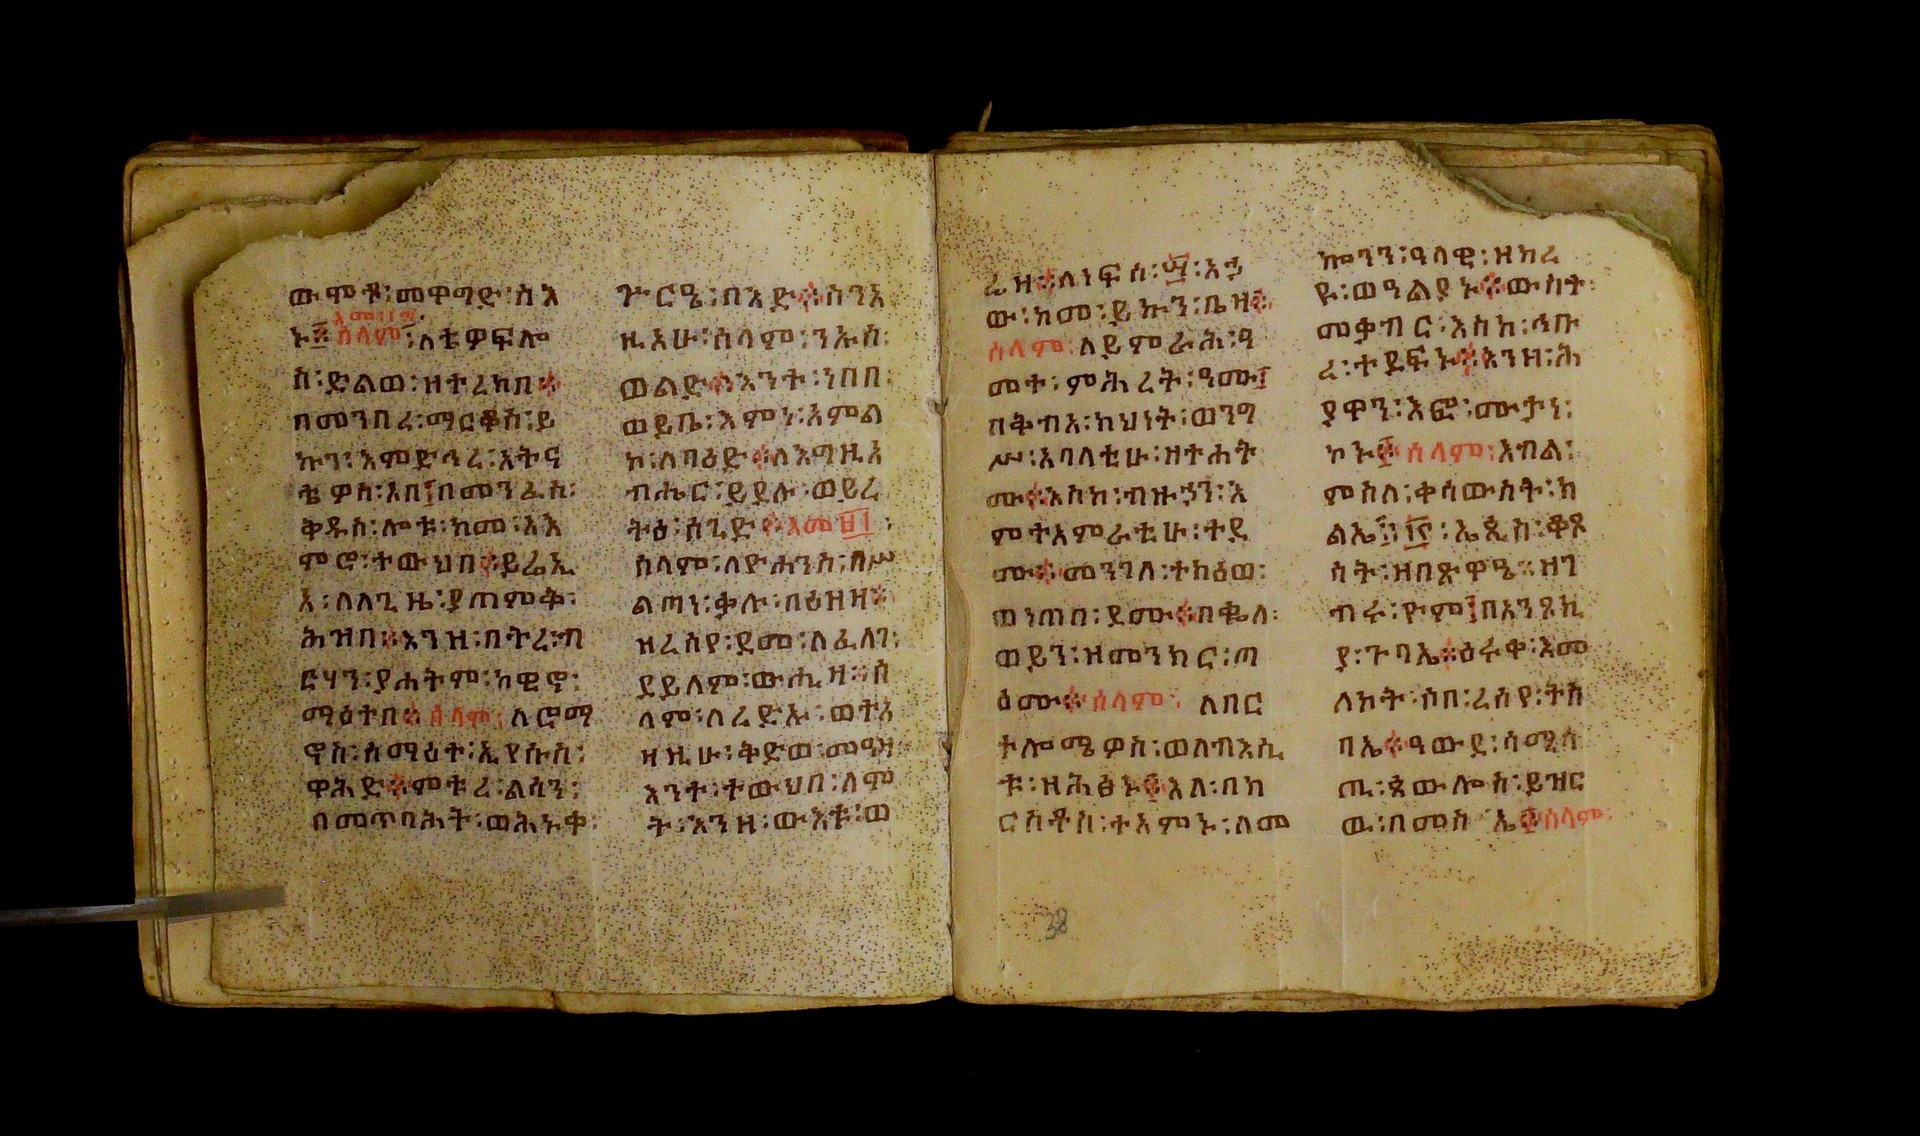 ውሞቶ፡መዋግድ፡ስእ
እመ፡፲፰
ኑ። ሰላም፡ለቴዎፍሎ
ስ፡ድልወ፡ዝተረክበ።
በመንበረ፡ማርቆስ፡ይ
ኩን፡እምድኅረ፡አትና
ቴዎስ፡አበ፡በመንፈስ፡
ቅዱስ፡ሎቱ፡ከመ፡አእ
ምሮ፡ተውህበ።ይሬኢ
እ፡ለለጊዜ፡ያጠምቅ፡
ሕዝበ።እንዝ፡በትረ፡ብ
ርሃን፡ያሐትም፡ከዊኖ፡
ማዕተበ። ሰላም፡ለሮማ
ኖስ፡ሰማዕተ፡ኢየሱስ፡
ዋሕድ።ምቱረ፡ልሳን፡
በመጥባሕት፡ወሕኑቀ፡
ጕርዔ፡በእድ።ስንእ
ዚአሁ፡ሰላም፡ንኡስ፡
ወልድ።እንተ፡ነበበ፡
ወይቤ፡እምነ፡አምል
ኮ፡ለባዕድ።ለእግዚአ
ብሔር፡ይደሉ፡ወይረ
ትዕ፡ሰጊድ።እመ፡፲
ሰላም፡ለዮሐንስ፡በሥ
ልጣነ፡ቃሉ፡በፅዝዝ።
ዝረስየ፡ደመ፡ለፈለገ፡
ደይለም፡ውሒዝ።ሰ
ላም፡ለረድኡ፡ወተእ
ዛዚሁ፡ቅድወ፡መዓዛ።
እንተ፡ተውህበ፡ለም
ት፡እንዘ፡ውእቱ፡ወ
ሬዝ።ለነፍስ፡፼፡አኃ
ው፡ከመ፡ይኩን፡ቤዛ።
ሰላም፡ለይምራሕ፡ዓ
መተ፡ምሕረት፡ዓሙ፤
በቅብአ፡ክህነት፡ወንግ
ሥ፡አባላቲሁ፡ዘተሐት
ሙ።እስከ፡ብዙኃን፡እ
ምተአምራቲሁ፡ተደ
ሙ።መንገለ፡ተከዕወ፡
ወነጠበ፡ደሙ።በቈለ፡
ወይን፡ዝመንክር፡ጣ
ዕሙ። ሰላም፡ ለበር
ተሎሜዎስ፡ወለብእሲ
ቱ፡ዝሕፅኑ።እለ፡በክ
ርስቶስ፡ተአምኑ፡ለመ
ኰንን፡ዓላዊ፡ዝክረ
ዩ፡ወዓልያኑ።ውስተ፡
መቃብር፡እስከ፡ኅቡ
ረ፡ተደፍኑ።እንዘ፡ሕ
ያዋን፡እፎ፡ሙታነ፡
ኮኑ። ሰላም፡እብል፡
ምስለ፡ቀሳውስት፡ክ
ልኤ፡፲፡ኤጲስ፡ቆጶ
ሳት፡ዝበጽዋዔ።ዘገ
ብሩ፡ዮም፡በአንጾኪ
ያ፡ጉባኤ።ዕሩቀ፡እመ
ለኮት፡ሶበ፡ረሰየ፡ትስ
ብኤ።ዓውደ፡ሳሚሳ
ጢ፡ጳውሎስ፡ይዝር
ዉ፡በመስኤ።ሰላም፡
38